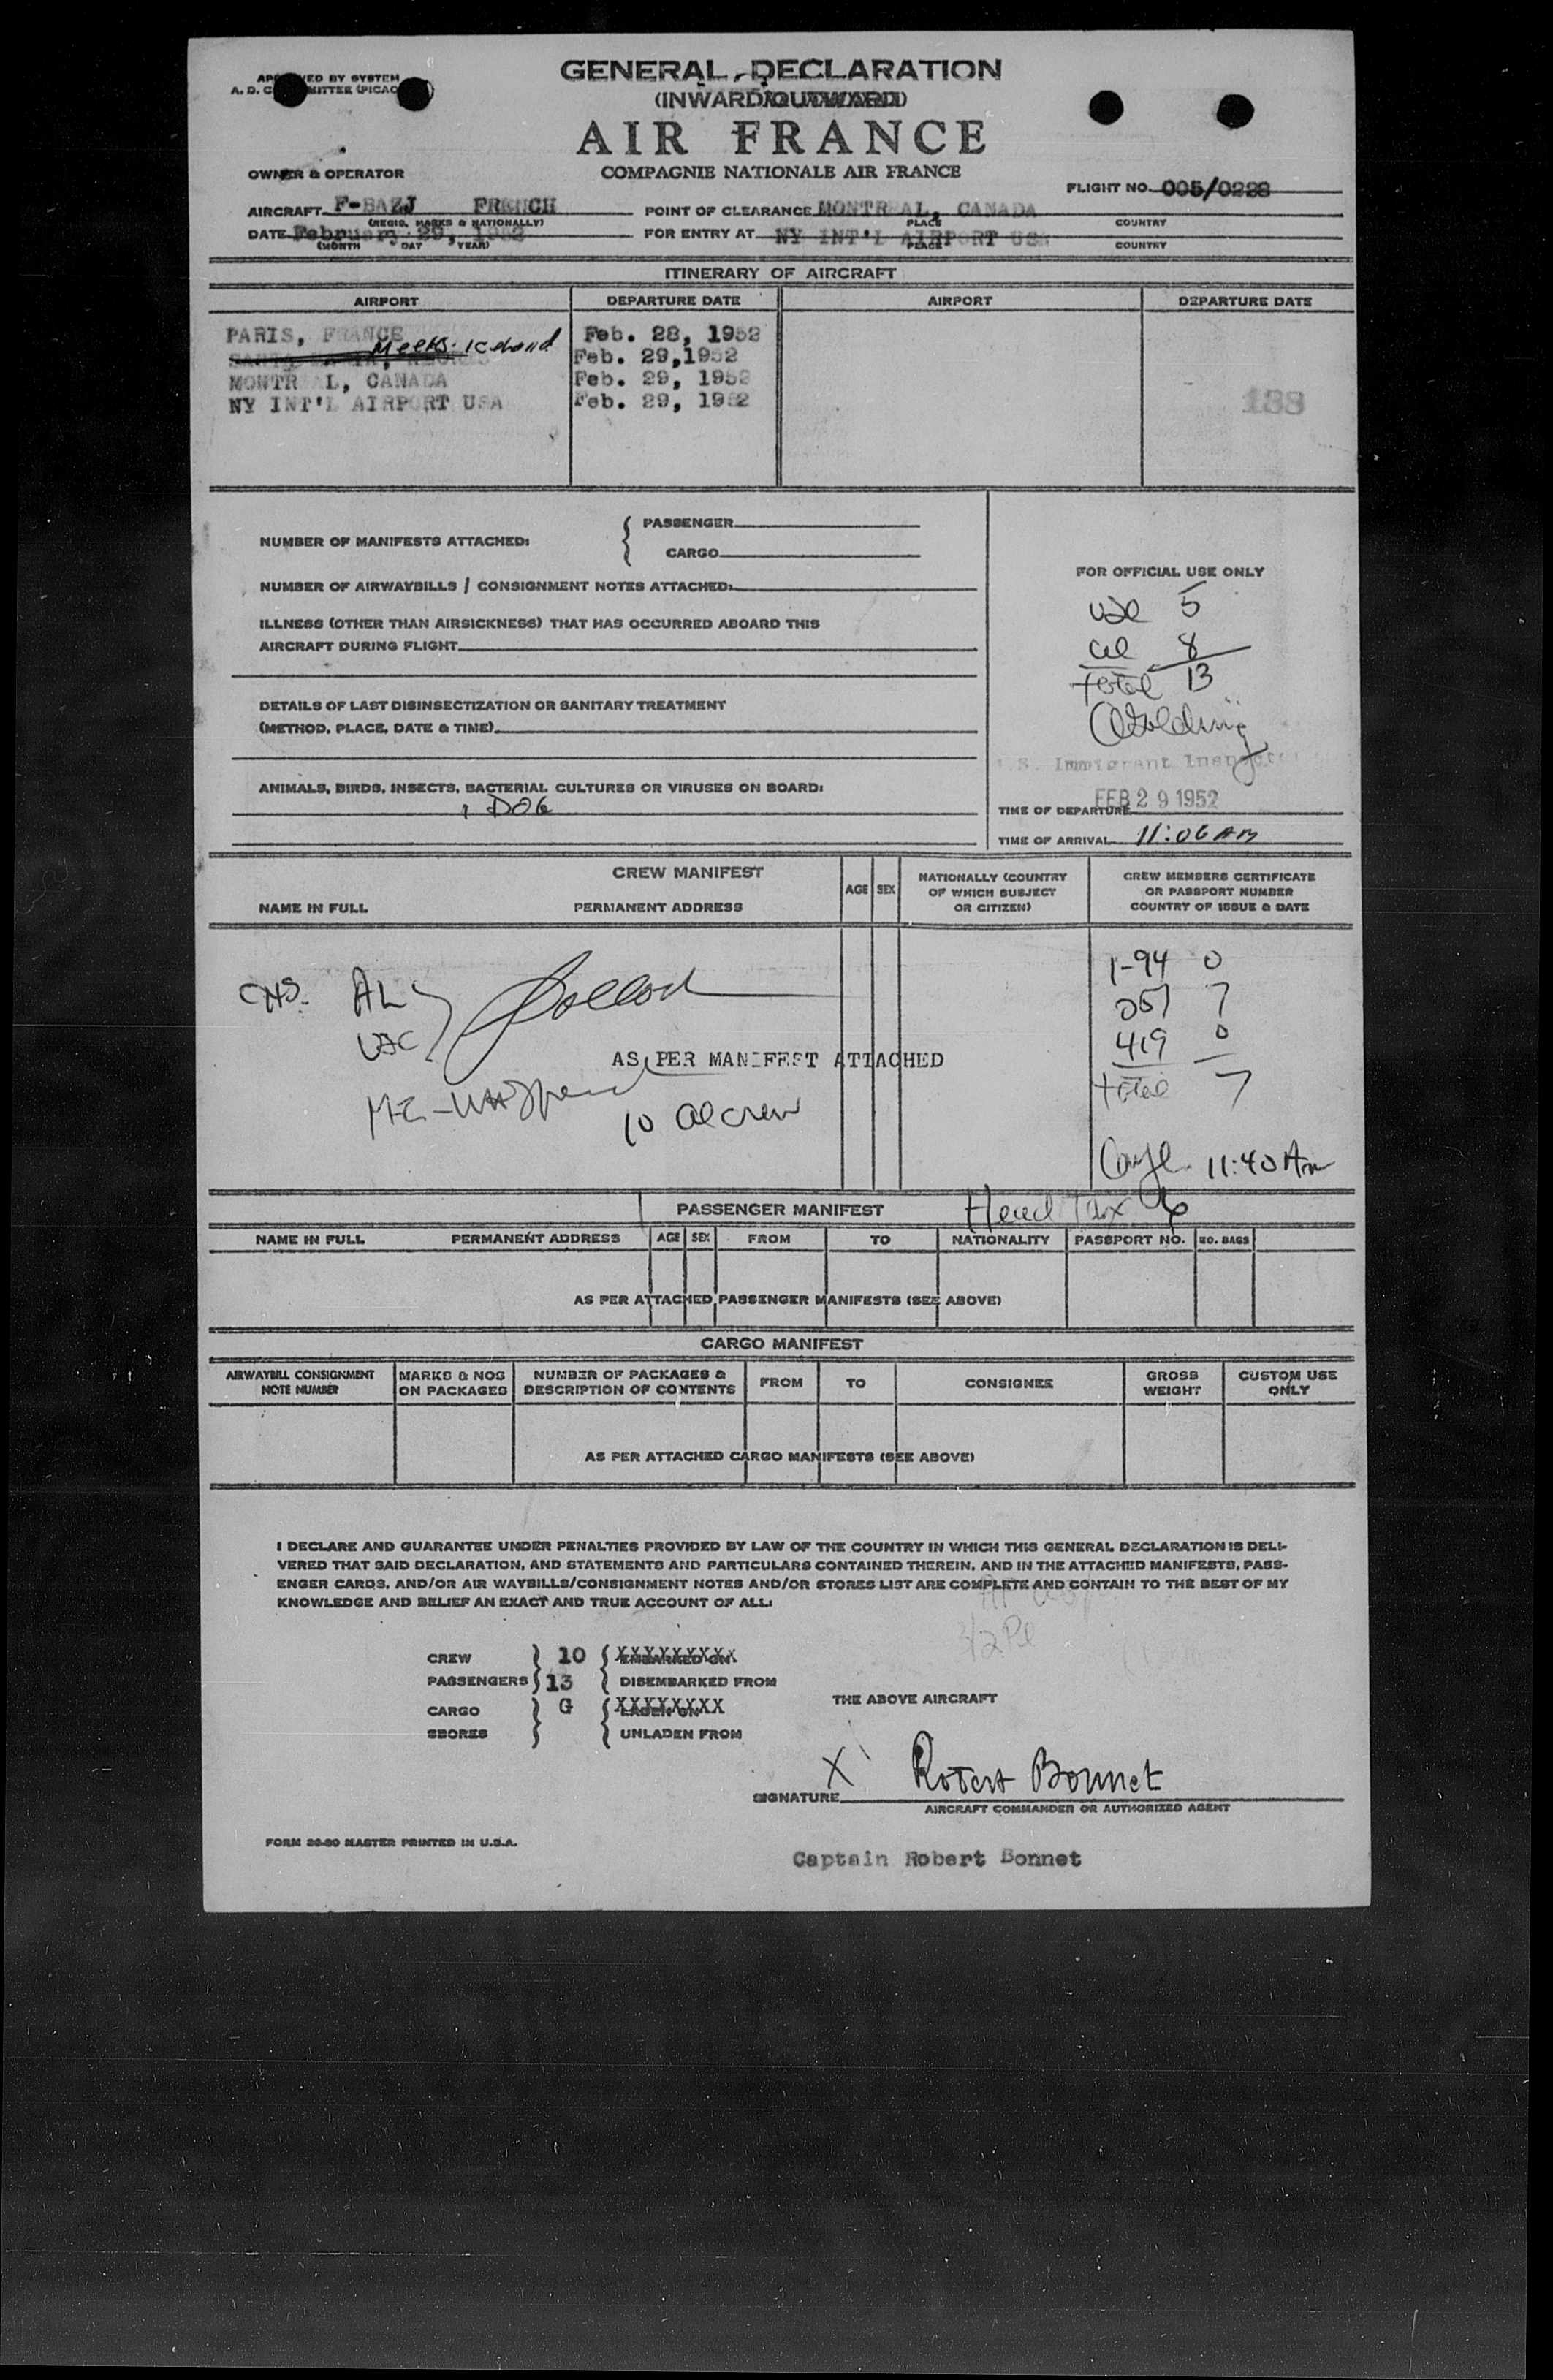 GENERAL DECLARATION
(INWARD/OUTWARD)
A. D. C MITTEE (PICAO
AIR FRANCE
OWNER & OPERATOR
COMPAGNIE NATIONALE AIR FRANCE
FLIGHT NO. 005/0228
AIRCRAFT F-BAZJ FRENCH
POINT OF CLEARANCE MONTREAL, CANADA
(REGIS. MARKS & NATIONALLY)
PLACE COUNTRY
DATE February 29, 1952
FOR ENTRY AT NY INT'L AIRPORT USA
(MONTH DAY YEAR)
PLACE COUNTRY
ITINERARY OF AIRCRAFT
AIRPORT DEPARTURE DATE AIRPORT DEPARTURE DATE
PARIS, FRANCE Feb. 28, 1952
Meeks. Iceland Feb. 29,1952
MONTR L, CANADA Feb. 29, 1952
NY INT'L AIRPORT USA Feb. 29, 1952
188
NUMBER OF MANIFESTS ATTACHED: { PASSENGER
CARGO
NUMBER OF AIRWAYBILLS / CONSIGNMENT NOTES ATTACHED:
ILLNESS (OTHER THAN AIRSICKNESS) THAT HAS OCCURRED ABOARD THIS
AIRCRAFT DURING FLIGHT
DETAILS OF LAST DISINSECTIZATION OR SANITARY TREATMENT
(METHOD, PLACE, DATE & TIME)
ANIMALS, BIRDS, INSECTS, BACTERIAL CULTURES OR VIRUSES ON BOARD:
1 DOG
FOR OFFICIAL USE ONLY
5
8
Total 13
U.S. Immigrant Inspector
FEB 29 1952
TIME OF DEPARTURE
TIME OF ARRIVAL 11:06 AM
CREW MANIFEST
NAME IN FULL PERMANENT ADDRESS
AGE SEX
NATIONALLY (COUNTRY
OF WHICH SUBJECT
OR CITIZEN)
CREW MEMBERS CERTIFICATE
OR PASSPORT NUMBER
COUNTRY OF ISSUE & DATE
AL
USC
AS PER MANIFEST ATTACHED
10 al crew
I-94 0
257 7
419 0
Total 7
11:40 Am
PASSENGER MANIFEST
Head Tax
NAME IN FULL PERMANENT ADDRESS AGE SEX FROM TO NATIONALITY PASSPORT NO. NO. BAGS
AS PER ATTACHED PASSENGER MANIFESTS (SEE ABOVE)
CARGO MANIFEST
AIRWAYBILL CONSIGNMENT
NOTE NUMBER
MARKS & NOS
ON PACKAGES
NUMBER OF PACKAGES &
DESCRIPTION OF CONTENTS
FROM TO CONSIGNEE
GROSS
WEIGHT
CUSTOM USE
ONLY
AS PER ATTACHED CARGO MANIFESTS (SEE ABOVE)
I DECLARE AND GUARANTEE UNDER PENALTIES PROVIDED BY LAW OF THE COUNTRY IN WHICH THIS GENERAL DECLARATION IS DELI-
VERED THAT SAID DECLARATION, AND STATEMENTS AND PARTICULARS CONTAINED THEREIN, AND IN THE ATTACHED MANIFESTS, PASS-
ENGER CARDS, AND/OR AIR WAYBILLS/CONSIGNMENT NOTES AND/OR STORES LIST ARE COMPLETE AND CONTAIN TO THE BEST OF MY
KNOWLEDGE AND BELIEF AN EXACT AND TRUE ACCOUNT OF ALL:
CREW } 10 { EMBARKED ON
PASSENGERS } 13 { DISEMBARKED FROM
THE ABOVE AIRCRAFT
CARGO } G { LADEN ON
SBORES } { UNLADEN FROM
X Robert Bonnet
SIGNATURE
AIRCRAFT COMMANDER OR AUTHORIZED AGENT
FORM 20-80 MASTER PRINTED IN U.S.A.
Captain Robert Bonnet